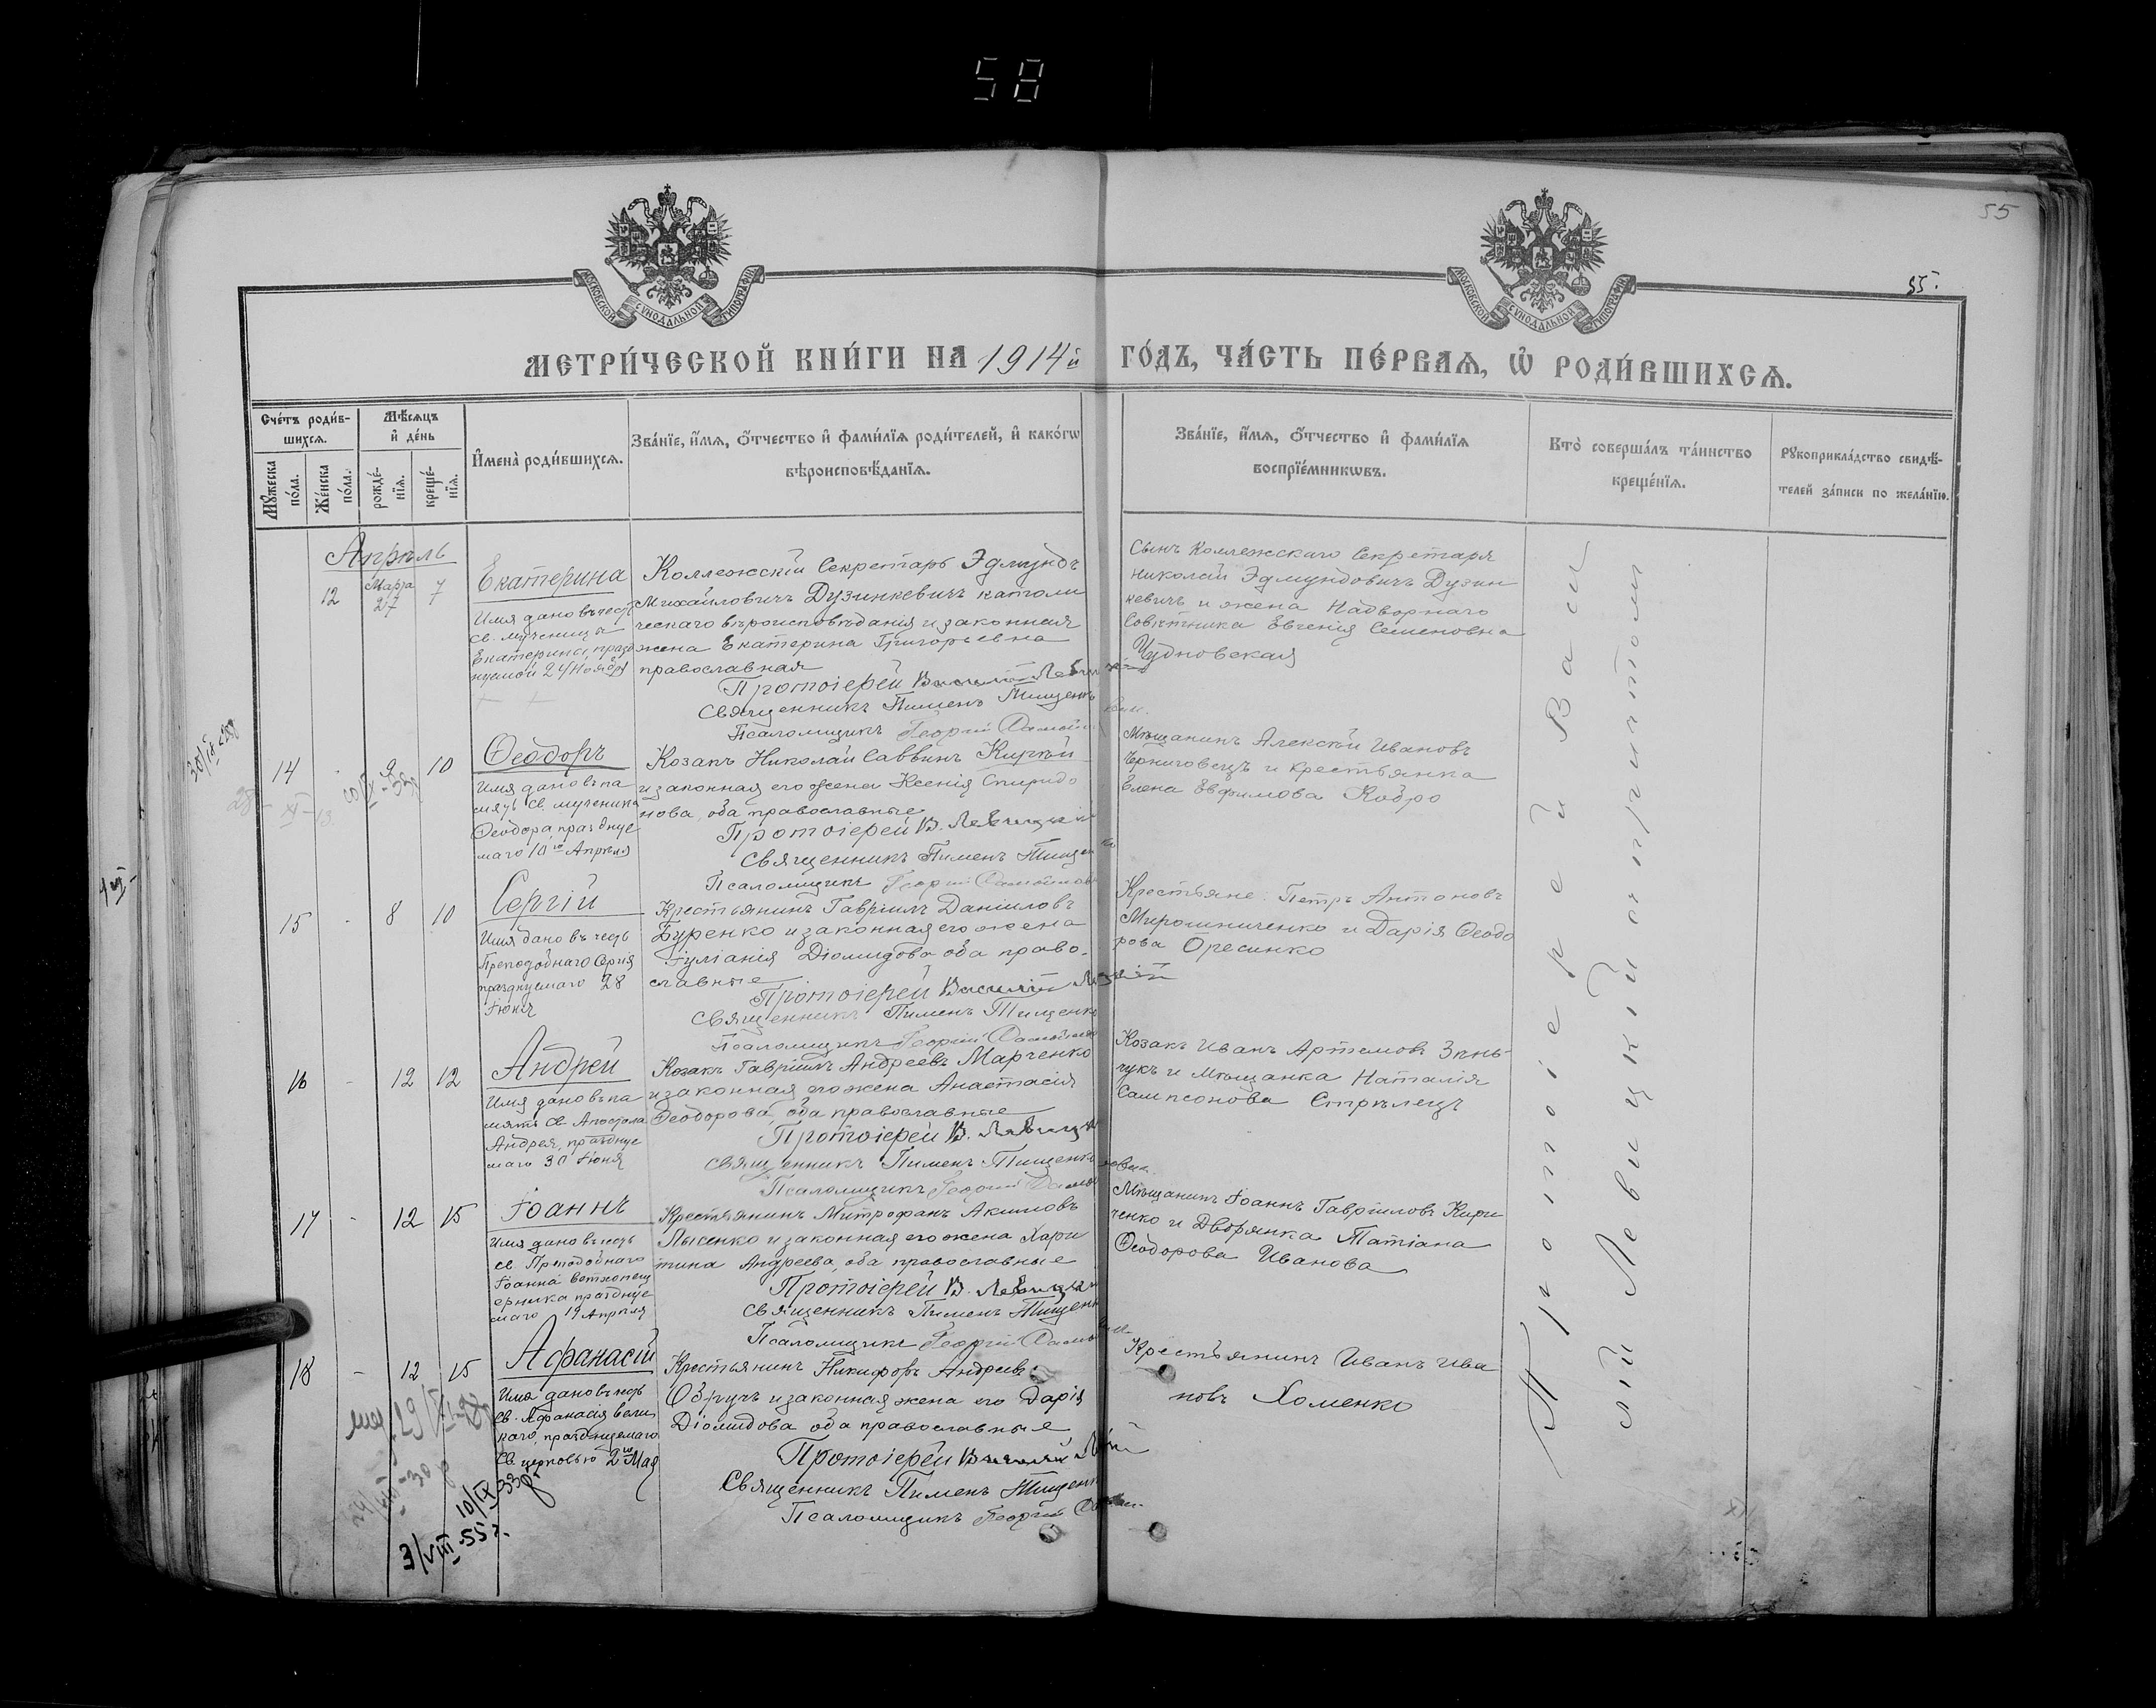 58
55
55.
МОСКОВСКОЙ СѴНОДАЛЬНОЙ ТИПОГРАФІИ
МОСКОВСКОЙ СѴНОДАЛЬНОЙ ТИПОГРАФІИ
МЕТРИ́ЧЕСКОЙ КНИ́ГИ НА 1914й ГО́ДЪ, ЧА́СТЬ ПЕ́РВАѦ, Ѡ҆ РОДИ́ВШИХСѦ.
Сче́тъ роди́в-
шихсѧ.
Мꙋ́жеска по́ла.
Же́нска по́ла.
Мѣ́сѧцъ
и҆ де́нь
рожде́-
нїѧ.
креще́-
нїѧ.
И҆мена̀ роди́вшихсѧ.
Зва́нїе, и҆́мѧ, ѻ҆́тчество и҆ фами́лїѧ роди́телей, и҆ како́гѡ
вѣроисповѣ́данїѧ.
Зва́нїе, и҆́мѧ, ѻ҆́тчество и҆ фами́лїѧ
воспрїе́мникѡвъ.
Кто̀ соверша́лъ та́инство
креще́нїѧ.
Рꙋкоприкла́дство свидѣ́-
телей за́писи по жела́нїю.
Апрѣль
12
Марта
27
7
Екатерина
Имя дано въ честь
Св. мученицы
Екатерины, празд
нуемой 24 Ноября
Коллежскій Секретарь Эдмундъ
Михайловичъ Дузинкевичъ католи
ческаго вѣроисповѣданія и законная
жена Екатерина Григорьевна
православная
Протоіерей Василій Левицкій
Священникъ Пименъ Тищенко
Псаломщикъ Георгій
Сынъ Коллежскаго Секретаря
Николай Эдмундовичъ Дузин
кевичъ и жена Надворнаго
Совѣтника Евгенія Семеновна
Чудновская
14 - 9 10
Ѳеодоръ
Имя дано въ па
мять Св. мученика
Ѳеодора, праздну
маго 10го Апрѣля
Козакъ Николай Саввинъ Кирѣй
и законная его жена Ксенія Спиридо
нова, оба православные
Протоіерей В. Левицкій
Священникъ Пименъ Тищенко
Псаломщикъ Георгій
Мѣщанинъ Алексѣй Ивановъ
Черниговецъ и крестьянка
Елена Евфимова Кобро
15 - 8 10
Сергій
Имя дано въ честь
Преподобнаго Сергія
празднуемаго 28
Іюня
Крестьянинъ Гавріилъ Даніиловъ
Буренко и законная его жена
Іуліанія Діомидова оба право-
славные
Протоіерей Василій Левицкій
Священникъ Пименъ Тищенко
Псаломщикъ Георгій
Крестьяне: Петръ Антоновъ
Мирошниченко и Дарія Ѳеодо
рова Оресинко
16 - 12 12
Андрей
Имя дано въ па
мять Св. Апостола
Андрея, праздну
маго 30 Іюня
Козакъ Гавріилъ Андреевъ Марченко
и законная его жена Анастасія
Ѳеодорова, оба православные
Протоіерей В. Левицкій
Священникъ Пименъ Тищенко
Псаломщикъ Георгій
Козакъ Иванъ Артемовъ Зинь-
чукъ и Мѣщанка Наталія
Сампсонова Стрѣлецъ
17 - 12 15
Іоаннъ
Имя дано въ честь
Св. Преподобнаго
Іоанна Ветхопещ
ерника праздну
маго 19 Апрѣля
Крестьянинъ Митрофанъ Акимовъ
Лысенко и законная его жена Хари
тина Андреева, оба православные
Протоіерей В. Левицкій
Священникъ Пименъ Тищенко
Псаломщикъ Георгій
Мѣщанинъ Іоаннъ Гавріиловъ Кири
ченко и Дворянка Татіана
Ѳеодорова Иванова
18 - 12 15
Афанасій
Имя дано въ честь
Св. Афанасія Вели
каго, празднуемаго
Св. церковью 2го Мая
Крестьянинъ Никифоръ Андреевъ
Обручъ и законная жена его Дарія
Діомидова оба православные
Протоіерей Василій
Священникъ Пименъ Тищенко
Псаломщикъ Георгій
Крестьянинъ Иванъ Ива
новъ Хоменко
10/IX-33г
3/VIII-55г.
Протоіерей Васи
лій Левицкій окрестилъ